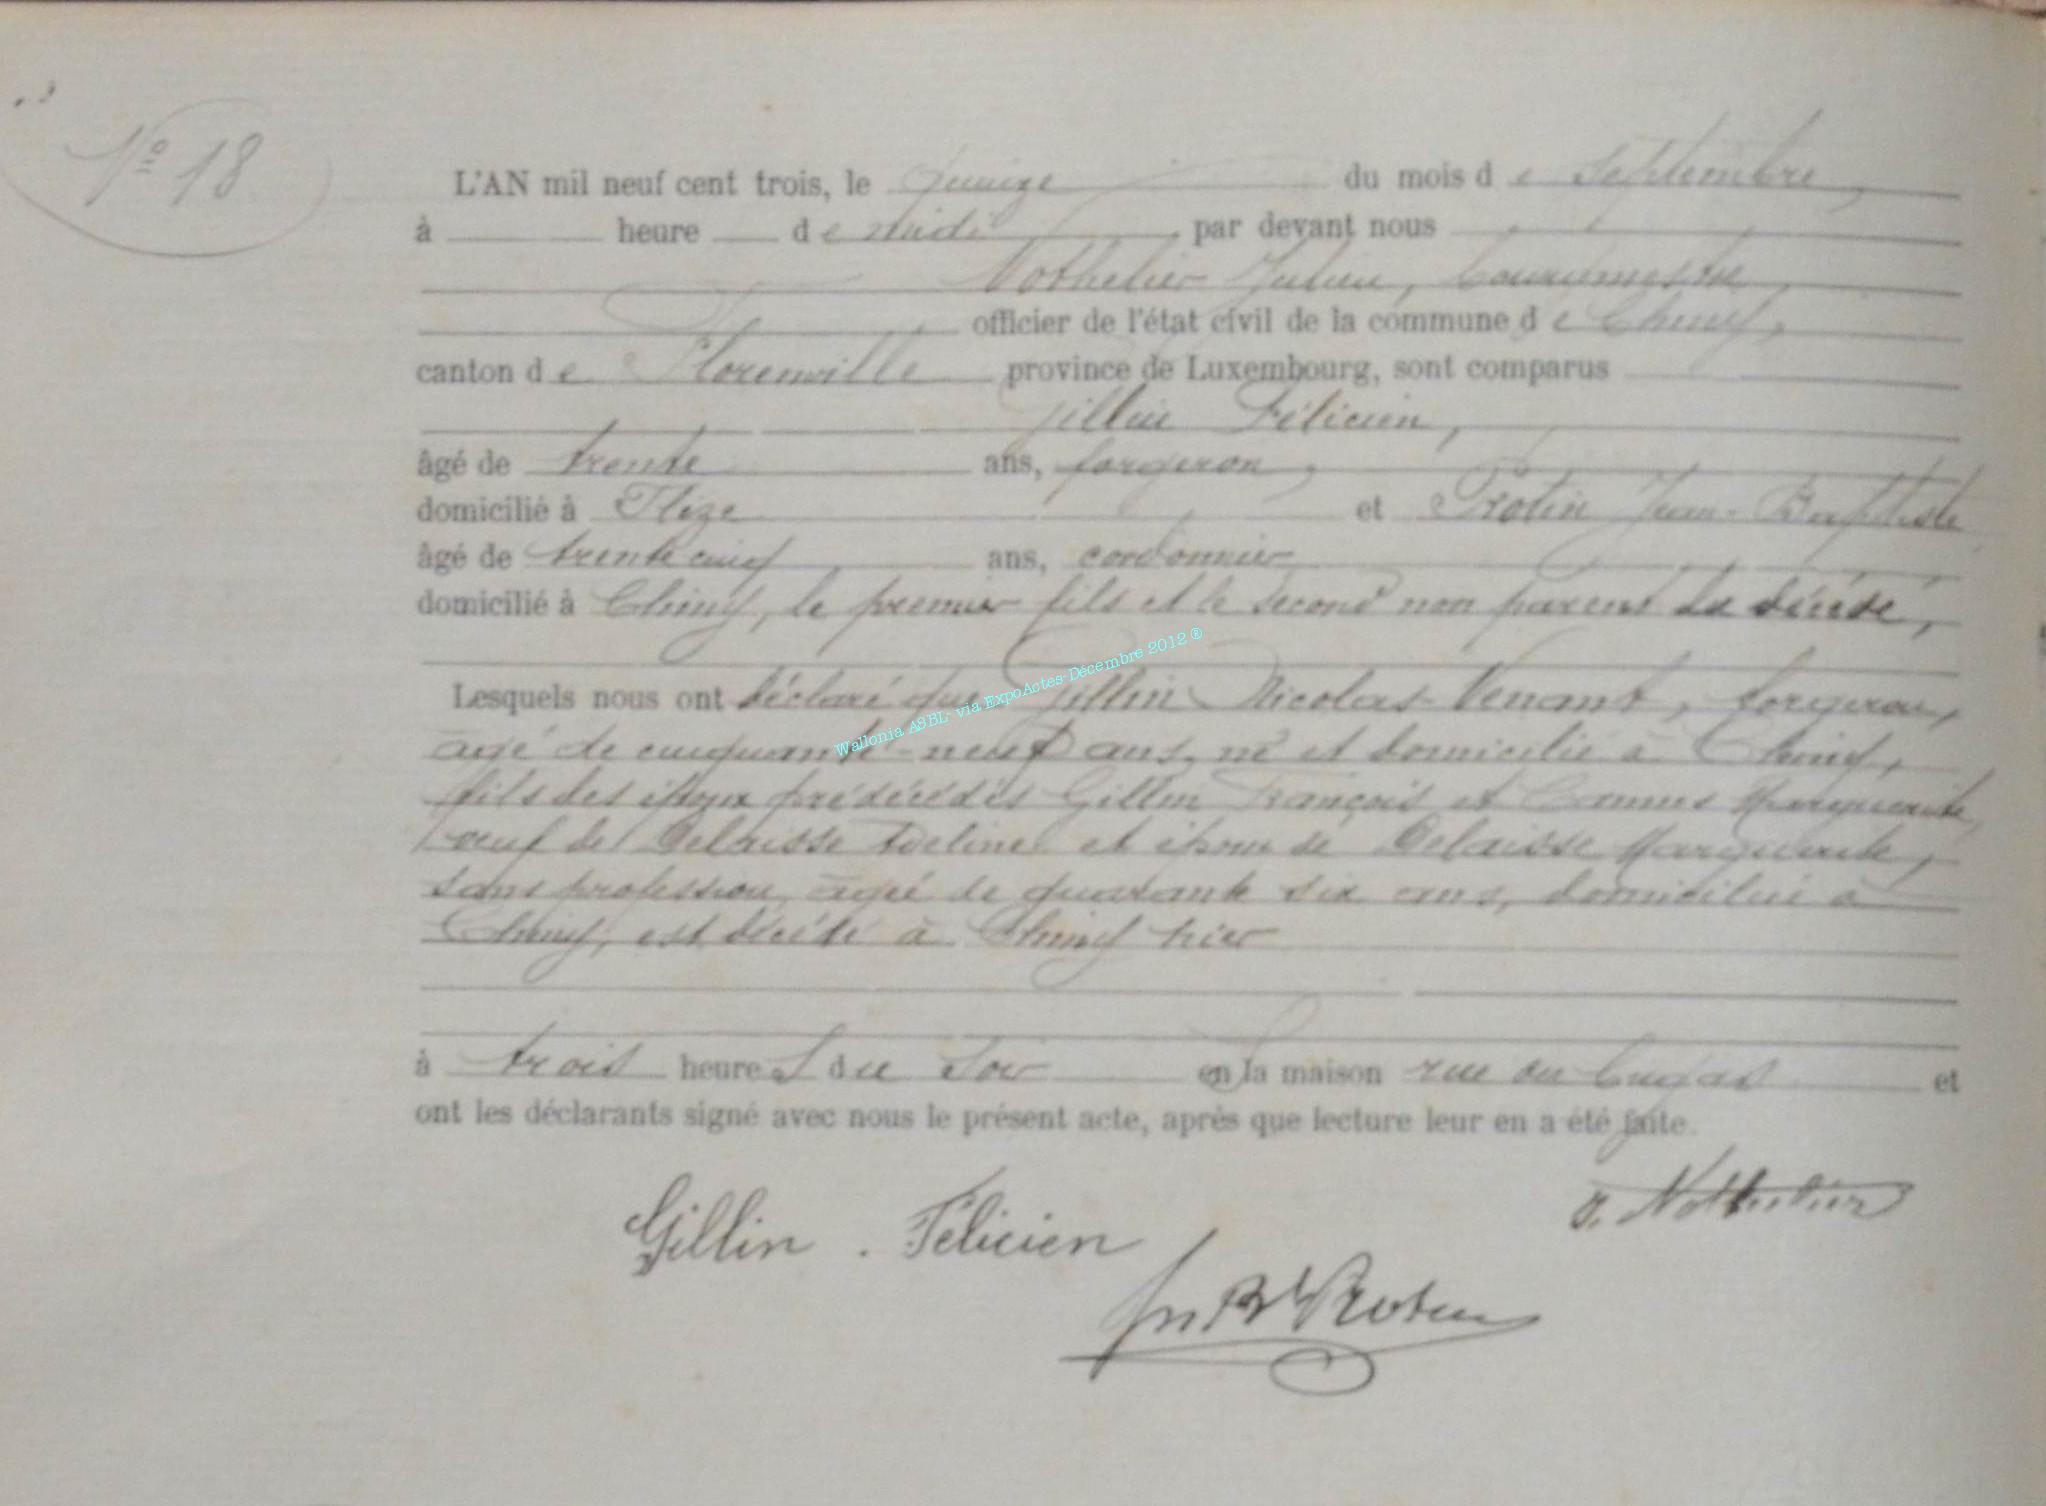 N° 18
L'AN mil neuf cent trois, le quinze du mois de Septembre,
à heure de midi, par devant nous
Nothelier Julien, bourgmestre,
officier de l'état civil de la commune de Chiny,
canton de Florenville province de Luxembourg, sont comparus
Gillin Félicien,
âgé de trente ans, forgeron,
domicilié à Flize et Protin Jean-Baptiste
âgé de trente cinq ans, cordonnier
domicilié à Chiny, le premier fils et le second non parent du décédé,
Lesquels nous ont déclaré que Gillin Nicolas-Venant, forgeron,
âgé de cinquante-neuf ans, né et domicilié à Chiny,
fils des époux prédécédés Gillin François et Camus Marguerite,
veuf de Delaisse Adeline et époux de Delaisse Marguerite,
sans profession, âgée de quarante six ans, domiciliée à
Chiny, est décédé à Chiny hier
à trois heures du soir en la maison rue du et
ont les déclarants signé avec nous le présent acte, après que lecture leur en a été faite.
J. Nothelier
Gillin . Félicien
Jn Bt Protin
Wallonia ASBL- via ExpoActes-Décembre 2012 ®